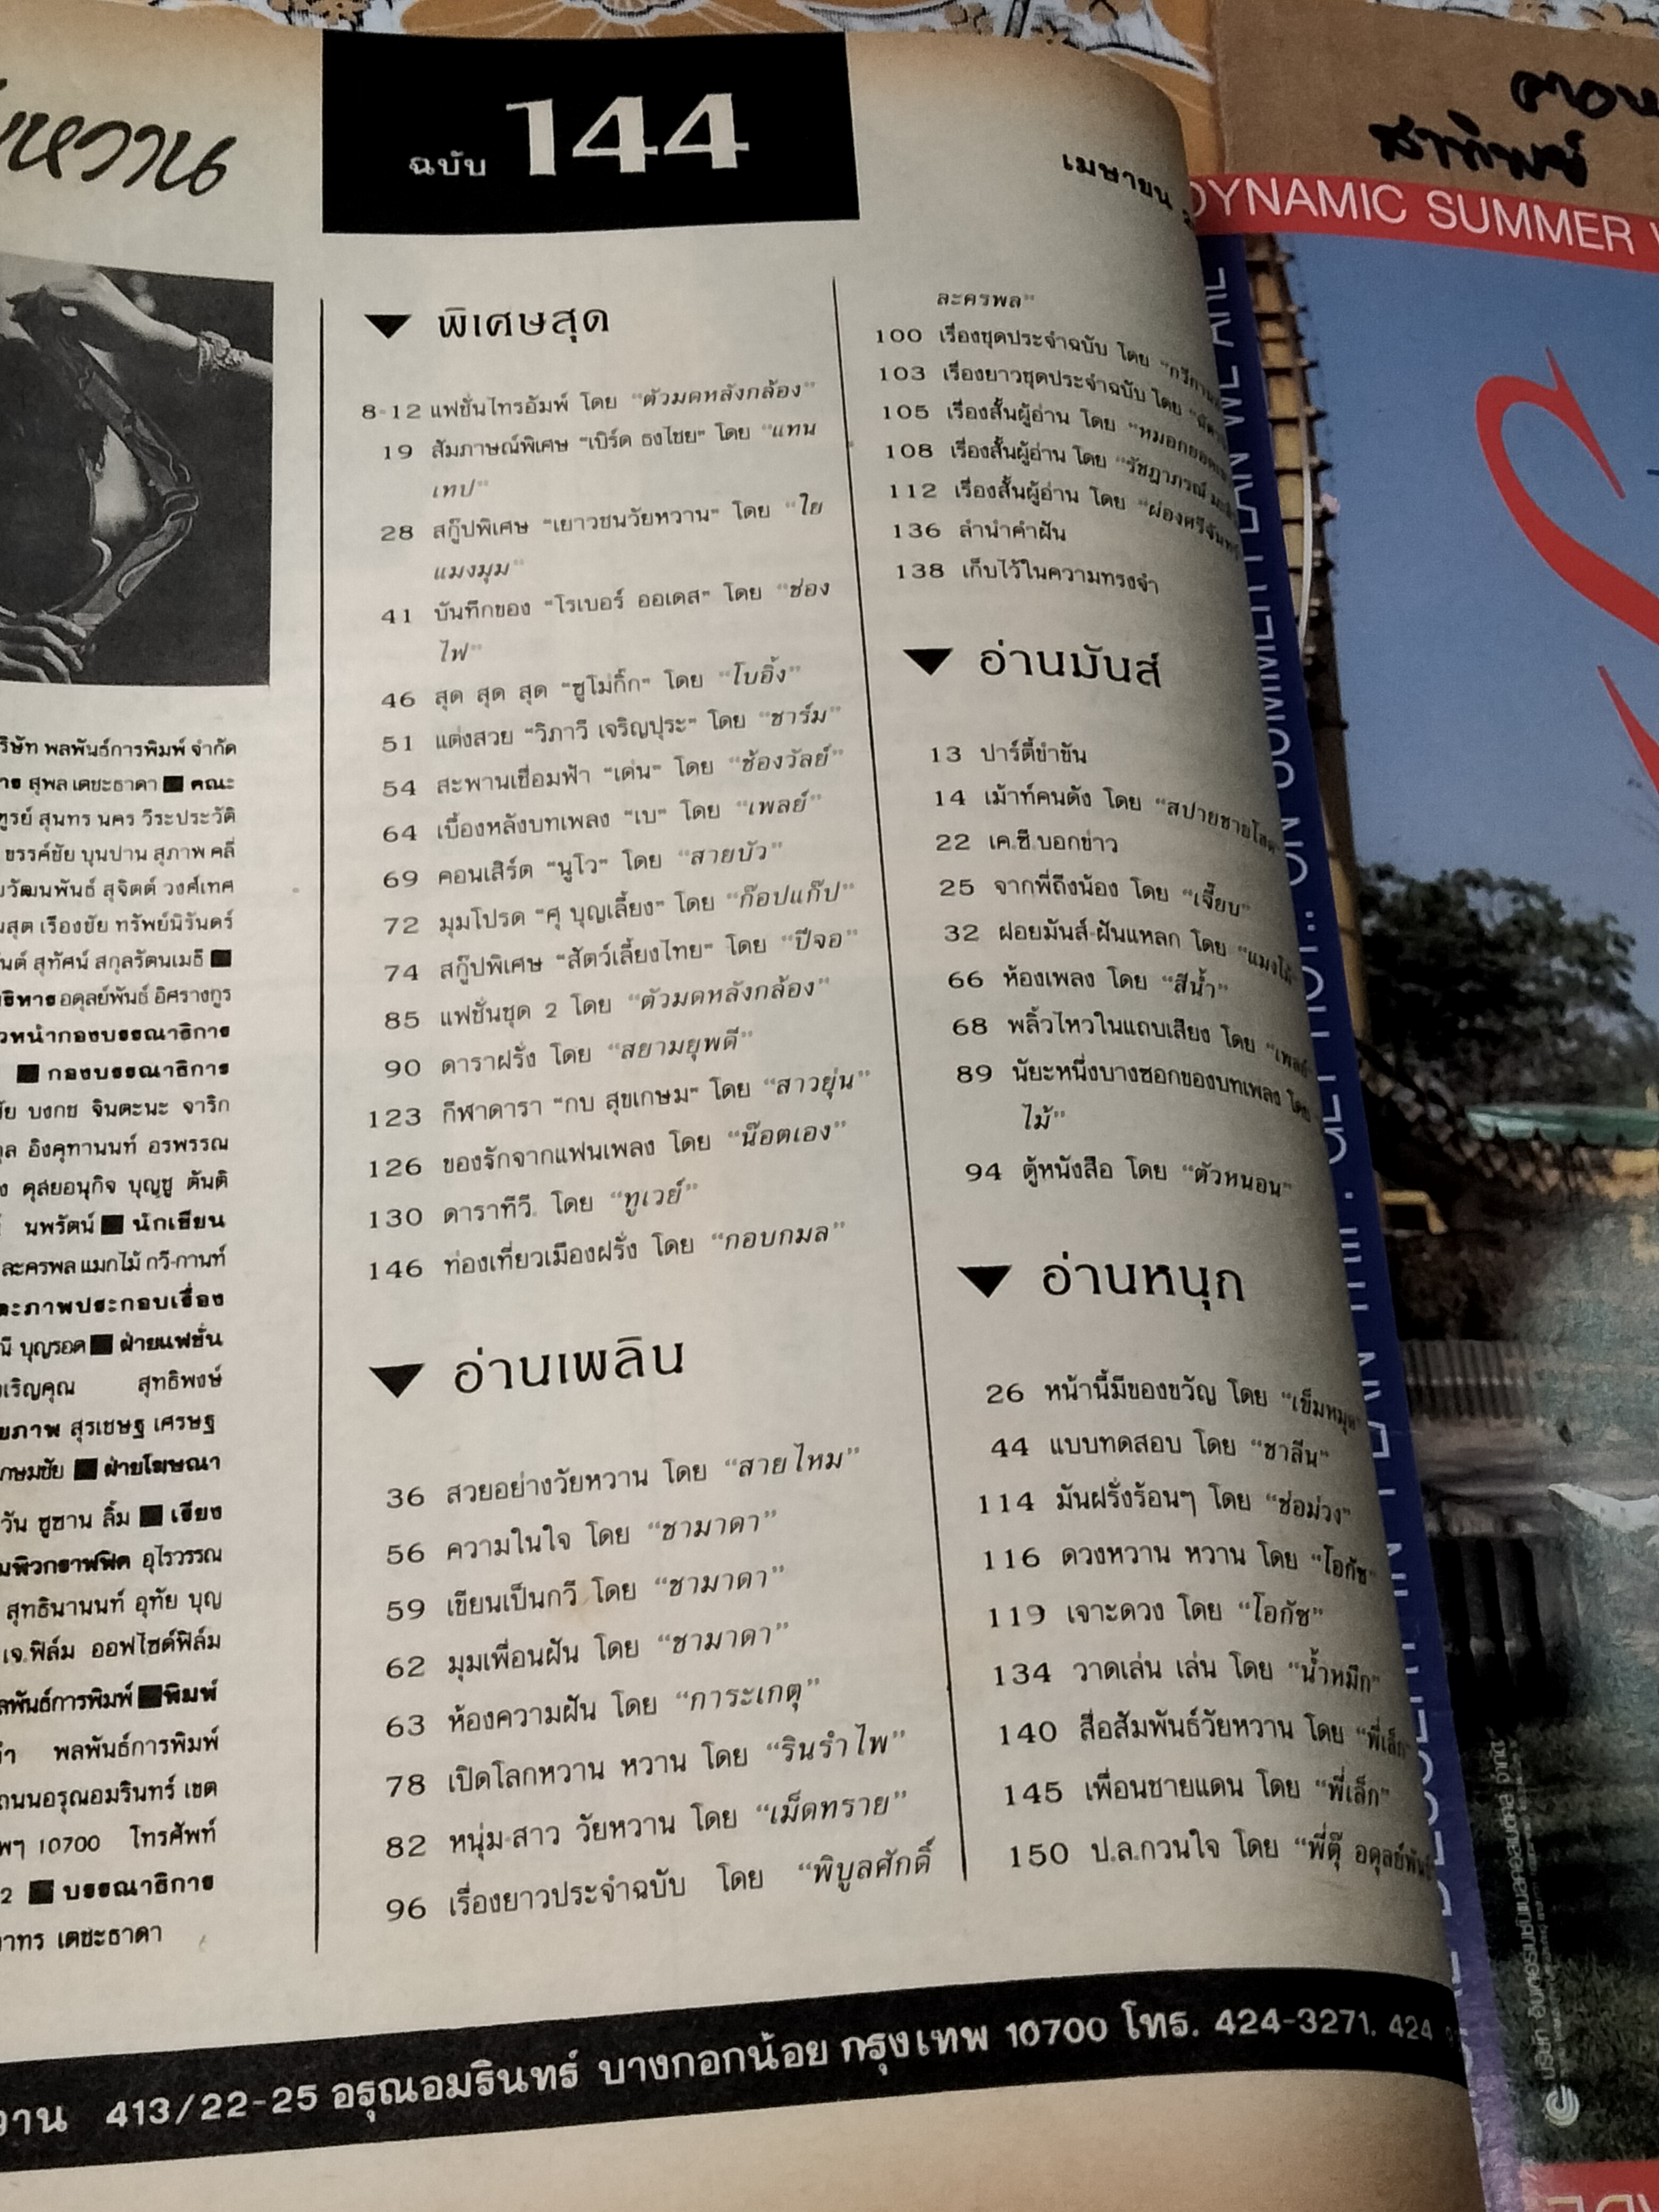 ฉบับ 144
เมษายน
พิเศษสุด
8-12 แฟชั่นไทรอัมพ์ โดย "ตัวมดหลังกล้อง"
19 สัมภาษณ์พิเศษ "เบิร์ด ธงไชย" โดย "แทน
เทป"
28 สกู๊ปพิเศษ "เยาวชนวัยหวาน" โดย "ใย
แมงมุม"
41 บันทึกของ "โรเบอร์ ออเดส" โดย "ช่อง
ไฟ"
46 สุด สุด สุด "ซูโม่กิ๊ก" โดย "โบอิ้ง"
51 แต่งสวย "วิภาวี เจริญปุระ" โดย "ชาร์ม"
54 สะพานเชื่อมฟ้า "เด่น" โดย "ช้องวัลย์"
64 เบื้องหลังบทเพลง "เบ" โดย "เพลย์"
69 คอนเสิร์ต "นูโว" โดย "สายบัว"
72 มุมโปรด "ศุ บุญเลี้ยง" โดย "ก๊อปแก๊ป"
74 สกู๊ปพิเศษ "สัตว์เลี้ยงไทย" โดย "ปีจอ"
85 แฟชั่นชุด 2 โดย "ตัวมดหลังกล้อง"
90 ดาราฝรั่ง โดย "สยามยุพดี"
123 กีฬาดารา "กบ สุขเกษม" โดย "สาวยุ่น"
126 ของรักจากแฟนเพลง โดย "น๊อตเอง"
130 ดาราทีวี. โดย "ทูเวย์"
146 ท่องเที่ยวเมืองฝรั่ง โดย "กอบกมล"
อ่านเพลิน
36 สวยอย่างวัยหวาน โดย "สายไหม"
56 ความในใจ โดย "ชามาดา"
59 เขียนเป็นกวี โดย "ชามาดา"
62 มุมเพื่อนฝัน โดย "ชามาดา"
63 ห้องความฝัน โดย "การะเกตุ"
78 เปิดโลกหวาน หวาน โดย "รินรำไพ"
82 หนุ่ม-สาว วัยหวาน โดย "เม็ดทราย"
96 เรื่องยาวประจำฉบับ โดย "พิบูลศักดิ์
ละครพล"
100 เรื่องชุดประจำฉบับ โดย
103 เรื่องยาวชุดประจำฉบับ โดย
105 เรื่องสั้นผู้อ่าน โดย
108 เรื่องสั้นผู้อ่าน โดย "รัชฎาภรณ์
112 เรื่องสั้นผู้อ่าน โดย "ผ่องศรีจันทร์
136 ลำนำคำฝัน
138 เก็บไว้ในความทรงจำ
อ่านมันส์
13 ปาร์ตี้ขำขัน
14 เม้าท์คนดัง โดย "สปายชายโสด"
22 เค.ซี.บอกข่าว
25 จากพี่ถึงน้อง โดย "เจี๊ยบ"
32 ฝอยมันส์-ฝันแหลก โดย
66 ห้องเพลง โดย "สีน้ำ"
68 พลิ้วไหวในแถบเสียง โดย "เพลย์"
89 นัยะหนึ่งบางซอกของบทเพลง โดย
ไม้"
94 ตู้หนังสือ โดย "ตัวหนอน"
อ่านหนุก
26 หน้านี้มีของขวัญ โดย "เข็มหมุด"
44 แบบทดสอบ โดย "ชาลีน"
114 มันฝรั่งร้อนๆ โดย "ช่อม่วง"
116 ดวงหวาน หวาน โดย "โอกัช"
119 เจาะดวง โดย "โอกัช"
134 วาดเล่น เล่น โดย "น้ำหมึก"
140 สื่อสัมพันธ์วัยหวาน โดย "พี่เล็ก"
145 เพื่อนชายแดน โดย "พี่เล็ก"
150 ป.ล.กวนใจ โดย "พี่ตุ๊ อดุลย์พันธ์
พลพันธ์การพิมพ์ จำกัด
สุพล เตชะธาดา ■ คณะ
สุนทร นคร วีระประวัติ
ขรรค์ชัย บุนปาน สุภาพ คลี่
สุจิตต์ วงศ์เทศ
เรืองชัย ทรัพย์นิรันดร์
สุทัศน์ สกุลรัตนเมธี ■
อดุลย์พันธ์ อิศรางกูร
กองบรรณาธิการ
■ กองบรรณาธิการ
บงกช จินตะนะ จาริก
อิงคุทานนท์ อรพรรณ
ดุสยอนุกิจ บุญชู ตันติ
นพรัตน์ ■ นักเขียน
ละครพล แมกไม้ กวี-กานท์
ภาพประกอบเรื่อง
บุญรอด ■ ฝ่ายแฟชั่น
สุทธิพงษ์
สุรเชษฐ เศรษฐ
■ ฝ่ายโฆษณา
ซูซาน ลิ้ม ■ เรียง
อุไรวรรณ
สุทธินานนท์ อุทัย บุญ
เจ.ฟิล์ม ออฟไซด์ฟิล์ม
พลพันธ์การพิมพ์ ■ พิมพ์
พลพันธ์การพิมพ์
ถนนอรุณอมรินทร์ เขต
10700 โทรศัพท์
2 ■ บรรณาธิการ
เตชะธาดา
413/22-25 อรุณอมรินทร์ บางกอกน้อย กรุงเทพ 10700 โทร. 424-3271, 424
สาทิพย์
DYNAMIC SUMMER